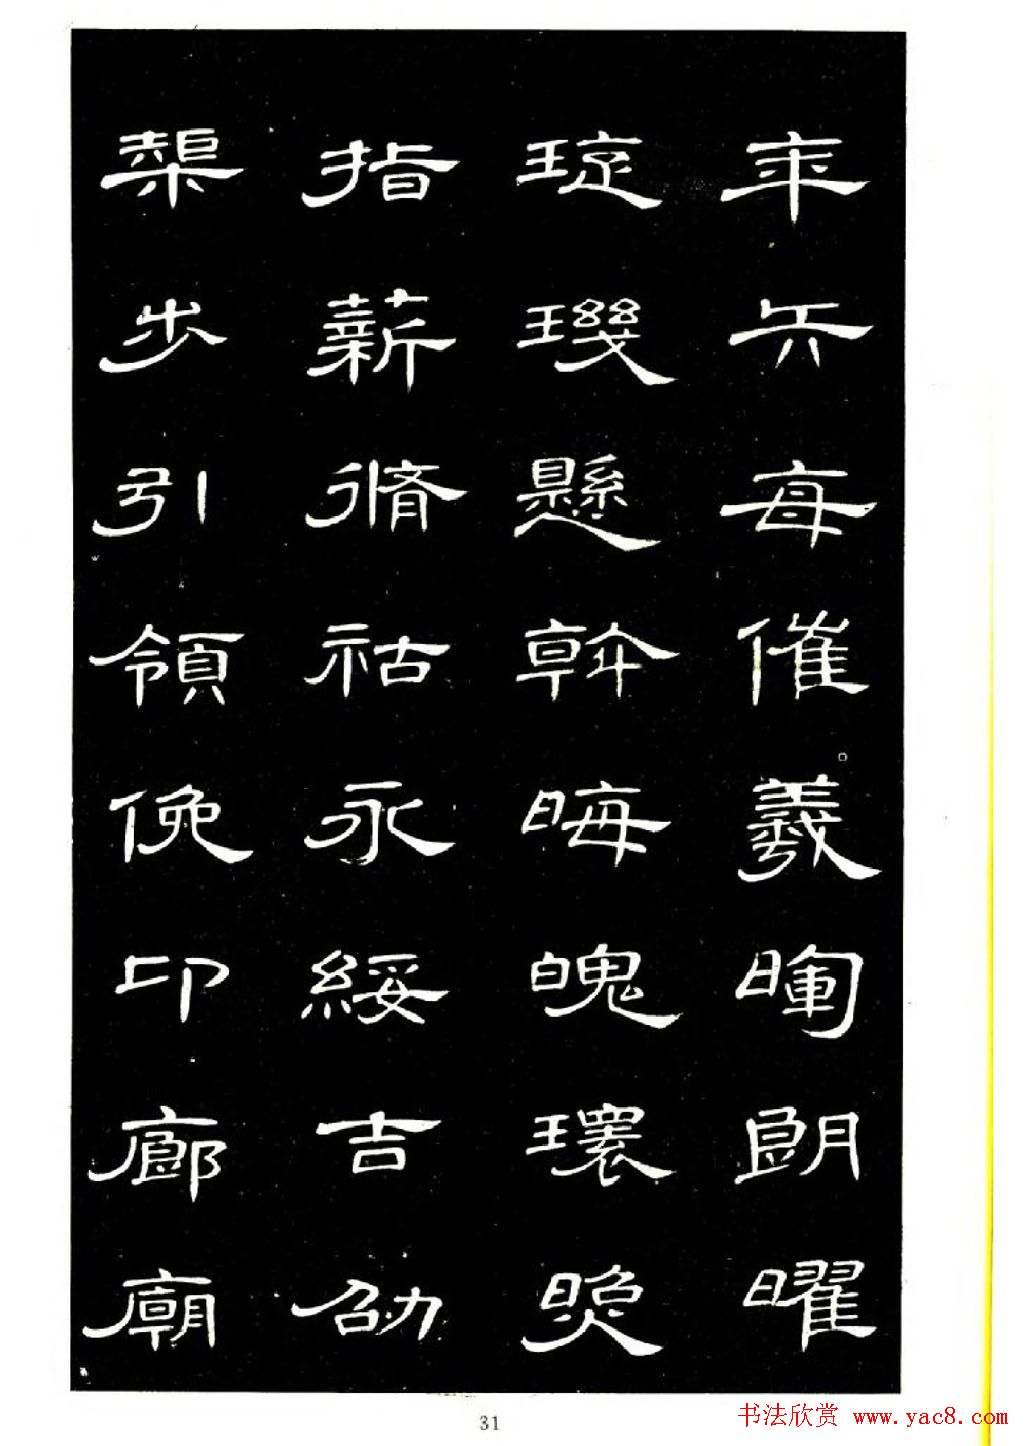 年矢每催羲暉朗曜
琁璣懸斡晦魄環照
指薪脩祜永綏吉劭
榘步引領俛卬廊廟
31
书法欣赏 www.yac8.com